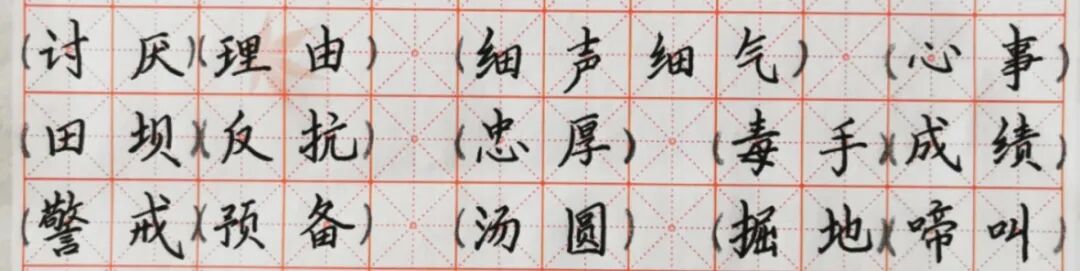 (讨厌)(理由) (细声细气) (心事)
(田坝)(反抗) (忠厚) (毒手)(成绩)
(警戒)(预备) (汤圆) (掘地)(啼叫)